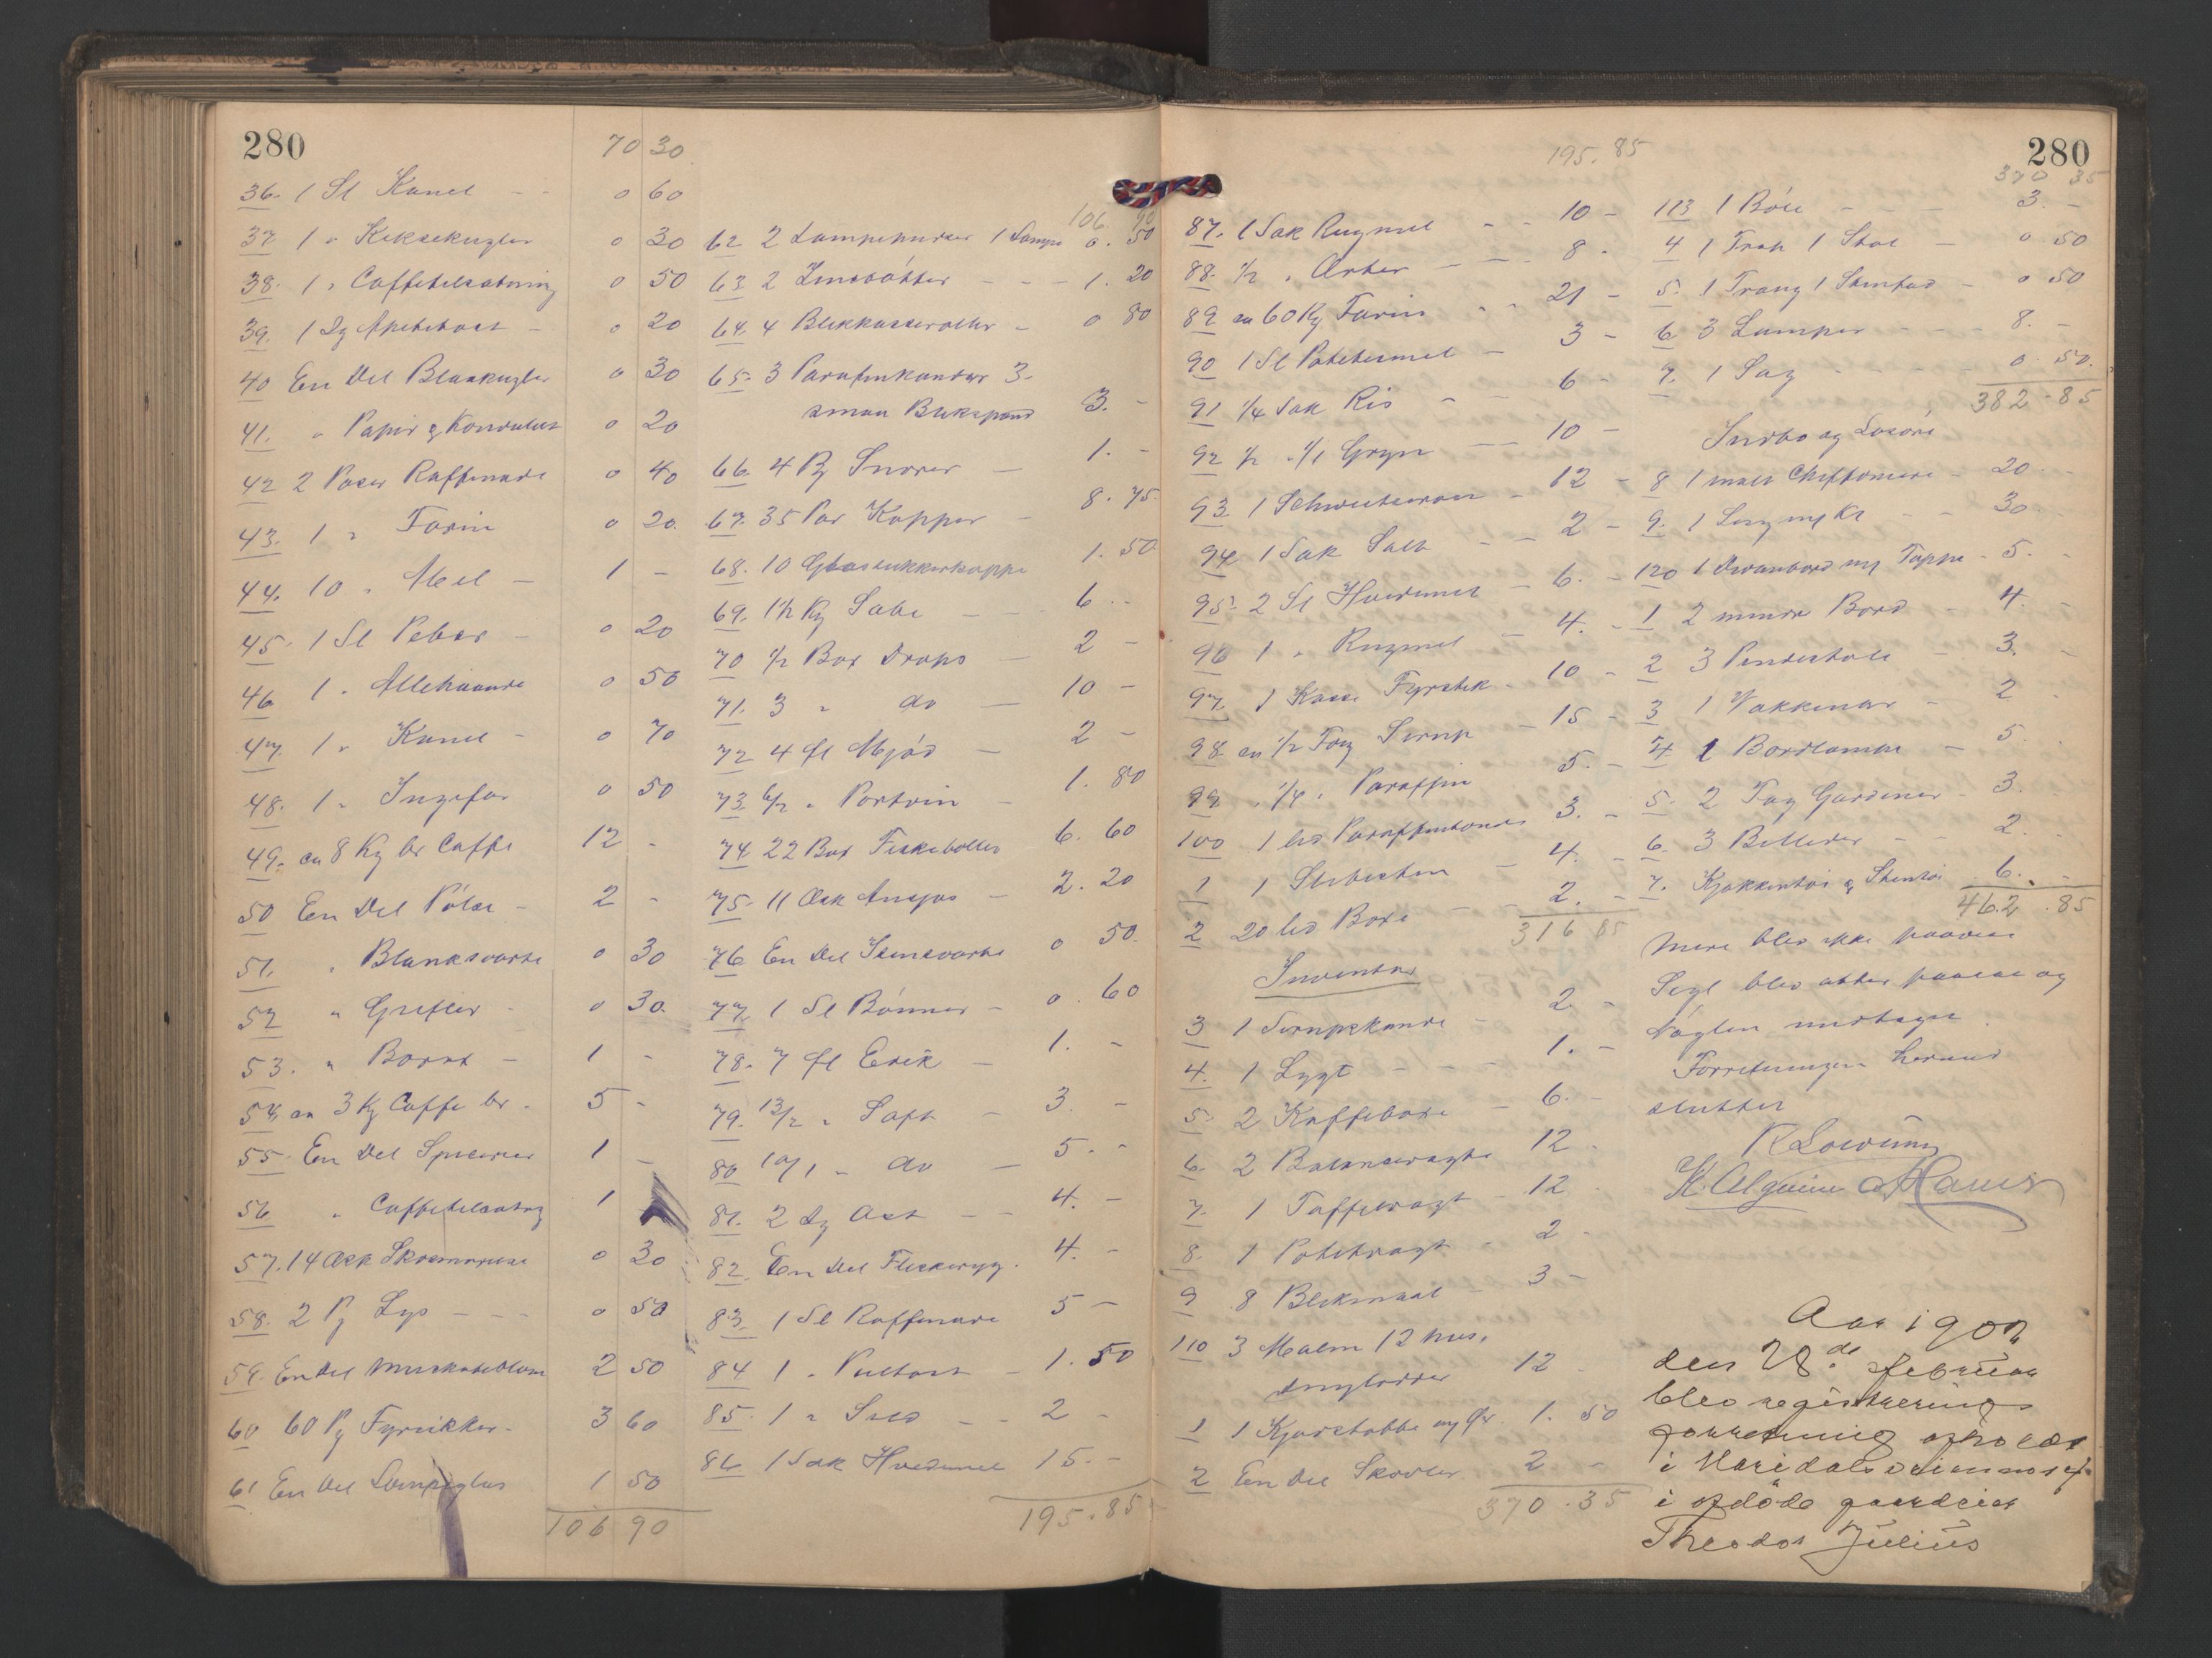 280
70 30
36. 1 Sl Kanel - - 0 60
37. 1 " Keksekugler 0 30
38. 1 " Caffetilsatning 0 50
39. 1 Dg Apetitost - 0 20
40 En Del Blaakugler 0 30
41. " Papir & Konvolut 0 20
42 2 Poser Raffinade 0 40
43. 1 " Farin 0 20
44. 10 " Mel - 1 -
45. 1 Sl Peber - 0 20
46 1 " Allehaande 0 50
47. 1 " Kanel - 0 70
48. 1 " Ingefær 0 50
49. ca 8 Kg br Caffe 12 -
50 En Del Pølse - 2 -
51. " Blanksværte 0 30
52 " Grifler - 0 30
53. " Børst - 1 -
54. ca 3 Kg Caffe br. 5 -
55. En Del Spicerier 1 -
56 " Caffetilsatng 1
57. 14 Æsk Skosmørelse 0 30
58. 2 Pg Lys - - - 0 50
59. En Del Muskatblom 2 50
60 60 Pg Fyrstikker - 3 60
61 En Del Lampeglas 1 50
106 90
106 90
62 2 Lampepudser 1 Lampe 0. 50
63 2 - - - 1. 20
64. 4 Blikkasseroller - 0 80
65. 3 Parafinkander 3.
smaa Blikspand 3. -
66. 4 Pg Snører - 1. -
67. 35 Par Kopper - 8. 75
68. 10 Glassukkerkoppe 1. 50
69. 1½ Kg Sæbe - - 6 -
70 ½ Box Drops - 2 -
71. 3 " do - 10 -
72 4 fl Mjød - 2 -
73. 6/2 " Portvin - 1. 80
74. 22 Box Fiskeboller 6. 60
75. 11 Æsk Ansjos - 2. 20
76 En Del 0 50.
77. 1 Sl Bønner - 0. 60
78. 7 fl Edik - 1. -
79. 13/2 " Saft - 3. -
80 10/1 " do - 5. -
81. 2 Dg Ost - - 4. -
82. En Del Flesk 4. -
83. 1 Sl Raffinade 5 -
84 1 " Pultost - 1. 50
85. 1 " Sild - - 2 -
86 1 Sæk Hvedemel 15. -
195. 85
280
195. 85
87. 1 Sæk Rugmel - - 10 -
88. ½ " Ærter - - - 8 -
89 ca 60 Kg Farin - - 21 -
90 1 Sl Potetesmel - 3 -
91 ¼ Sæk Ris - - 6 -
92 ½ " Gryn - - 10 -
93. 1 Schweiterost - 12 -
94 1 Sæk Salt - - 2 -
95. 2 Sl Hvedemel - 6. -
96 1 " Rugmel - 4. -
97. 1 Kasse Fyrstik - 10 -
98 ca ½ Fag Sirup - 15 -
99. " ¼ " Paraffin 5. -
100 1 led Paraffintønde 3. -
1 1 Slibesten - 4. -
2 20 led Boxe - - 2. -
316 85
Inventar
3 1 Sirupskande - 2 -
4. 1 Lygt - - - 1. -
5. 2 Kaffebøse - 6. -
6. 2 Balancevægte 12 -
7. 1 Taffelvægt - 12
8. 1 Potetvægt - 2 -
9 8 Blikmaal - 3 -
110 3 Malm 12
12
1 1 1. 50
2 En Del Skovler 2 -
370. 35
370 35
113 1 Bøsse - - - 3. -
4 1 Trap 1 Stol - 0 50
5. 1 - 0 50
6 3 Lamper - - - 8. -
7. 1 Sag - - - - 0. 50.
382 - 85
Indbo og Løsøre
8 1 malt Chiffoniere - 20 -
9. 1 Seng m Kl - - 30 -
120 1 Divanbord m/ Tæppe - 5. -
1 2 mindre Bord - 4. -
2 3 Pindestole - 3. -
3 1 Vækkeuhr - 2 -
4 1 Bordlampe - 5. -
5. 2 Fag Gardiner - 3. -
6. 3 Billeder - - 2.
7. Kjøkkentøi & Stentøi 6. -
462. 85
Mere blev ikke paavist
Segl blev atter paasat og
Nøglen medtaget
Forretningen hermed
sluttet
K. Alguin
Aar 1902
den 28de februar
blev registrerings
forretning afholdt
i
i afdøde gaardeier
Theodor Julius